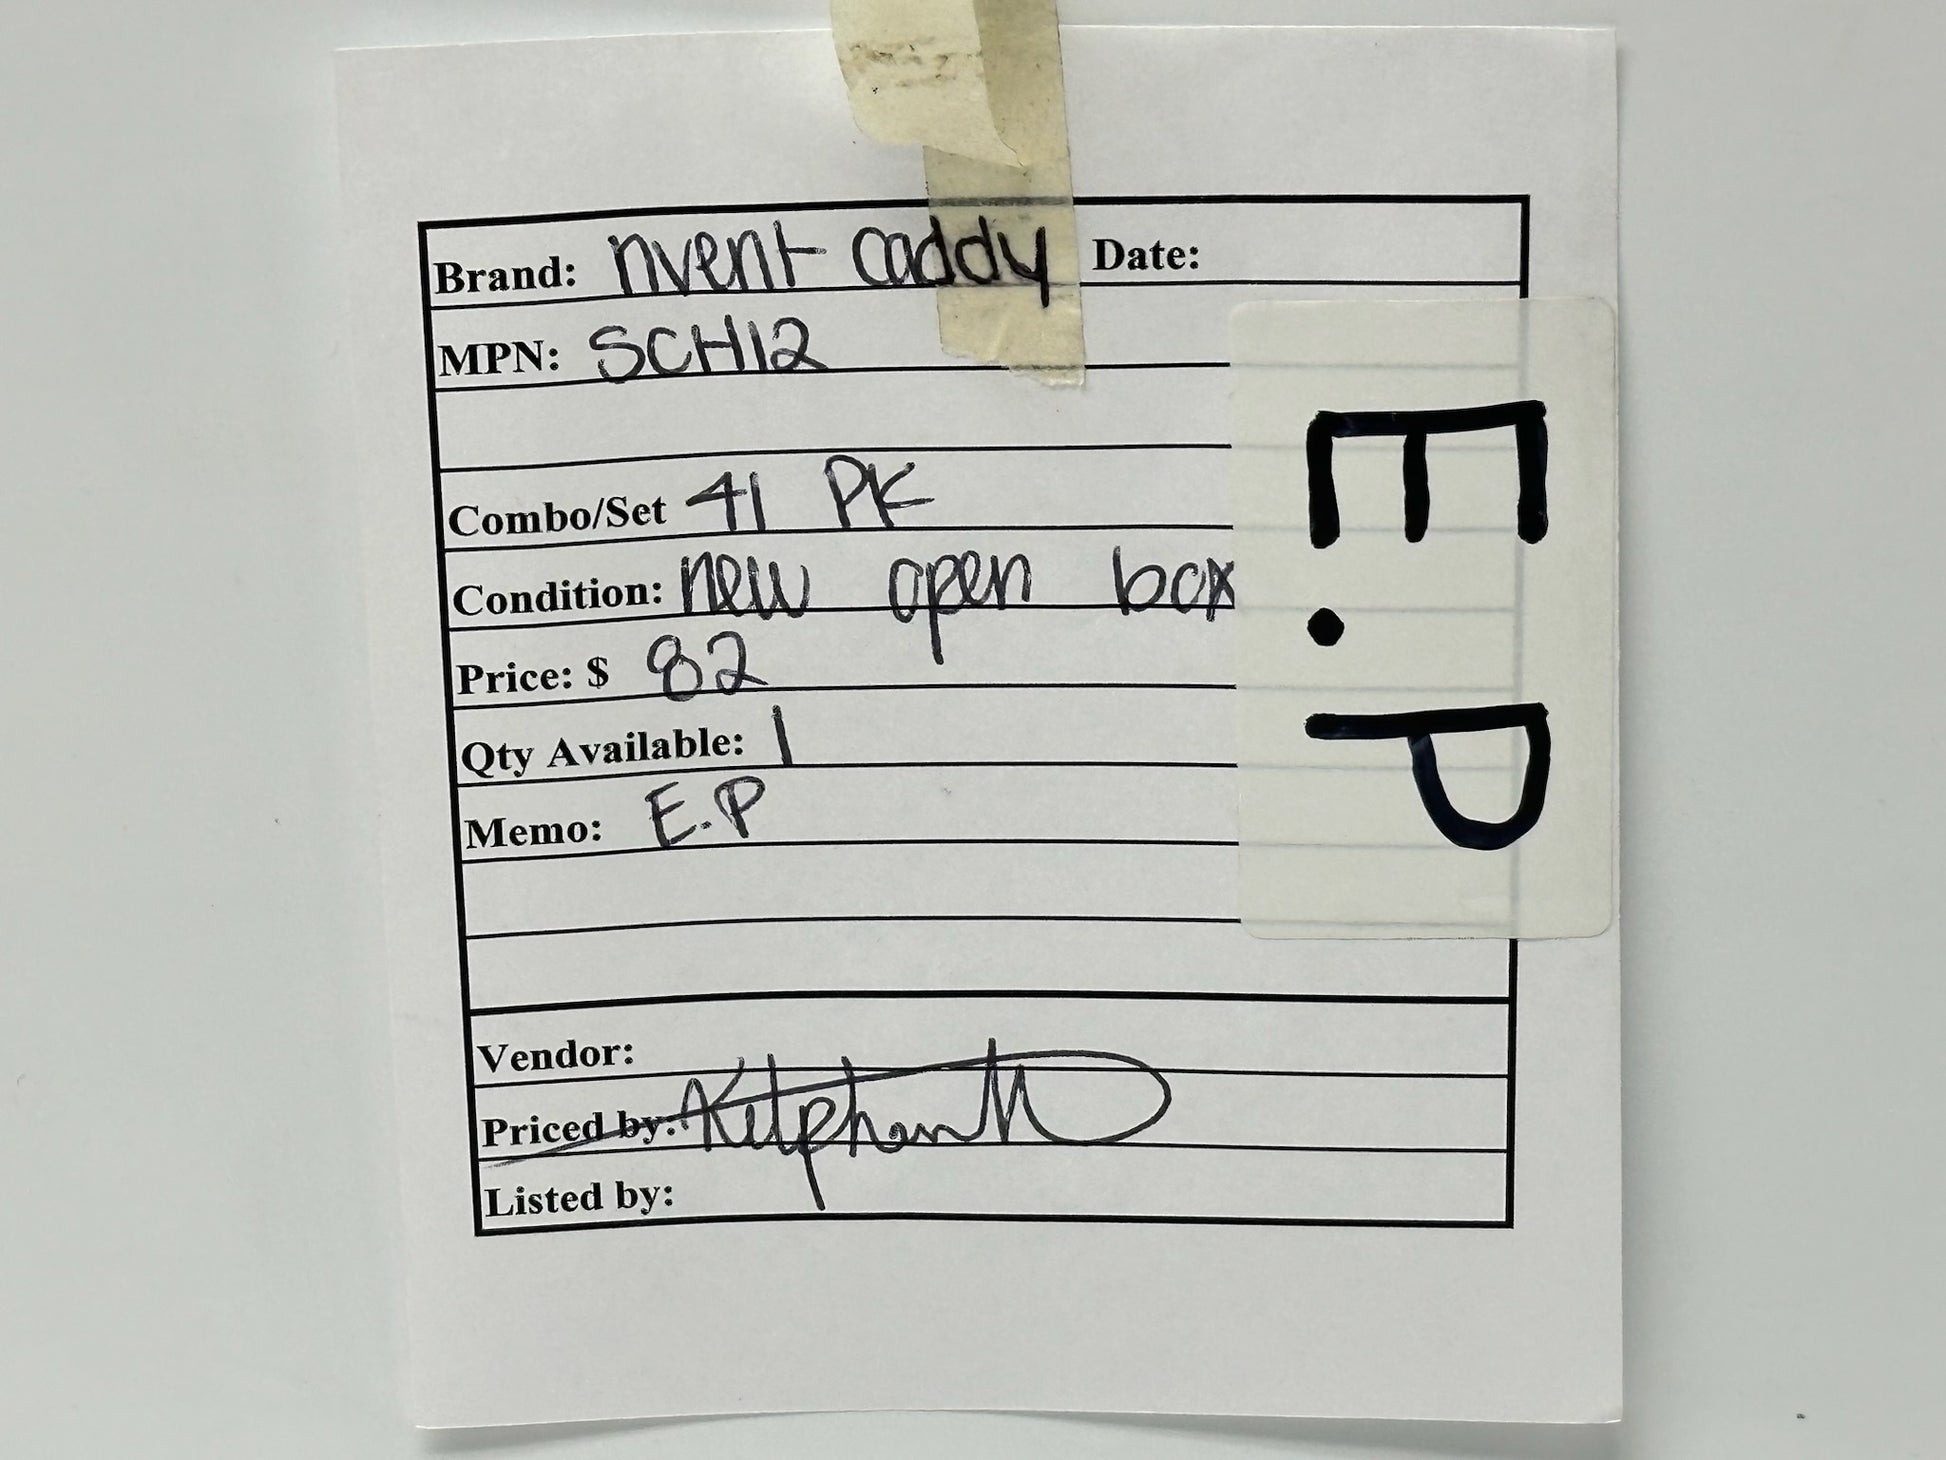 Brand: nvent caddy Date:
MPN: SCH12
Combo/Set 41 PK
Condition: new open box
Price: $ 82
Qty Available: 1
Memo: E.P
E.P
Vendor:
Priced by:
Listed by: